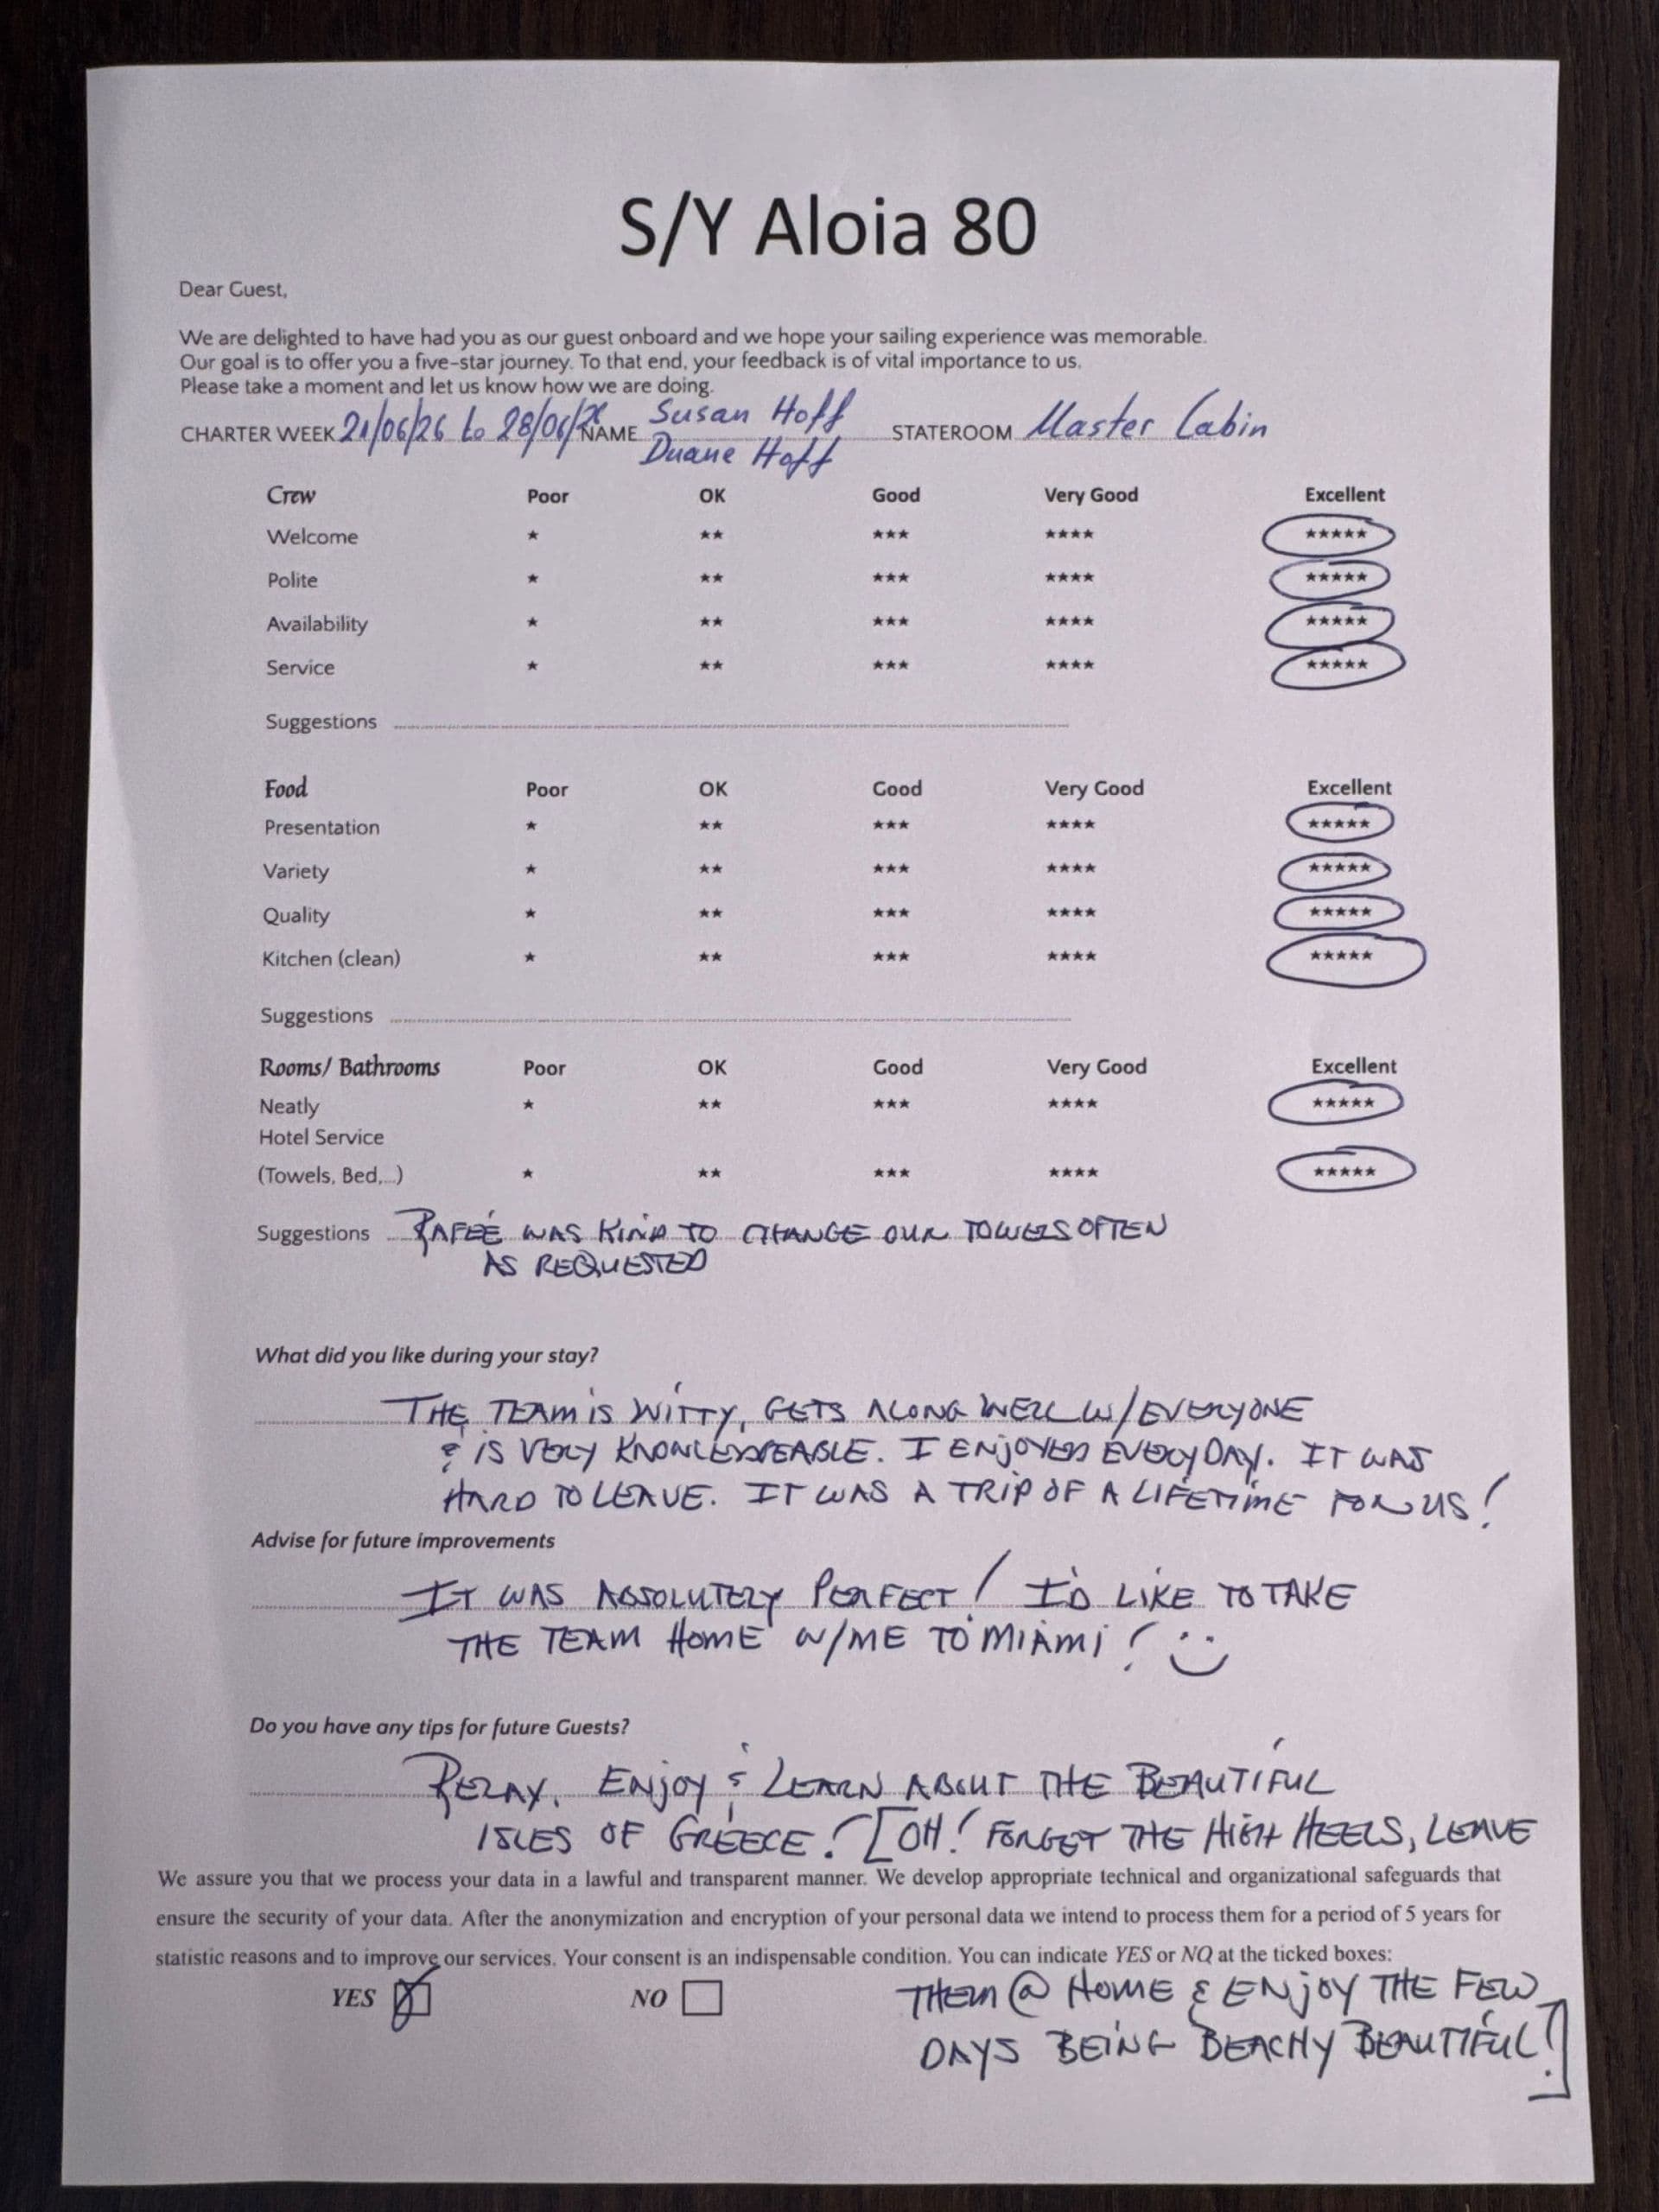 S/Y Aloia 80
Dear Guest,
We are delighted to have had you as our guest onboard and we hope your sailing experience was memorable.
Our goal is to offer you a five-star journey. To that end, your feedback is of vital importance to us.
Please take a moment and let us know how we are doing.
CHARTER WEEK 21/06/26 to 28/06/26 NAME Susan Hoff STATEROOM Master Cabin
Duane Hoff
Crew Poor OK Good Very Good Excellent
Welcome ★ ★★ ★★★ ★★★★ ★★★★★
Polite ★ ★★ ★★★ ★★★★ ★★★★★
Availability ★ ★★ ★★★ ★★★★ ★★★★★
Service ★ ★★ ★★★ ★★★★ ★★★★★
Suggestions
Food Poor OK Good Very Good Excellent
Presentation ★ ★★ ★★★ ★★★★ ★★★★★
Variety ★ ★★ ★★★ ★★★★ ★★★★★
Quality ★ ★★ ★★★ ★★★★ ★★★★★
Kitchen (clean) ★ ★★ ★★★ ★★★★ ★★★★★
Suggestions
Rooms/ Bathrooms Poor OK Good Very Good Excellent
Neatly ★ ★★ ★★★ ★★★★ ★★★★★
Hotel Service
(Towels, Bed,..) ★ ★★ ★★★ ★★★★ ★★★★★
Suggestions WAS KIND TO CHANGE OUR TOWELS OFTEN
AS REQUESTED
What did you like during your stay?
THE TEAM IS WITTY, GETS ALONG WELL W/EVERYONE
& IS VERY KNOWLEDGEABLE. I ENJOYED EVERYDAY. IT WAS
HARD TO LEAVE. IT WAS A TRIP OF A LIFETIME FOR US!
Advise for future improvements
IT WAS ABSOLUTELY PERFECT! I'D LIKE TO TAKE
THE TEAM HOME W/ME TO MIAMI!
Do you have any tips for future Guests?
RELAX, ENJOY & LEARN ABOUT THE BEAUTIFUL
ISLES OF GREECE! [OH! FORGET THE HIGH HEELS, LEAVE
We assure you that we process your data in a lawful and transparent manner. We develop appropriate technical and organizational safeguards that
ensure the security of your data. After the anonymization and encryption of your personal data we intend to process them for a period of 5 years for
statistic reasons and to improve our services. Your consent is an indispensable condition. You can indicate YES or NO at the ticked boxes:
YES NO
THEM @ HOME & ENJOY THE FEW
DAYS BEING BEACHY BEAUTIFUL!]